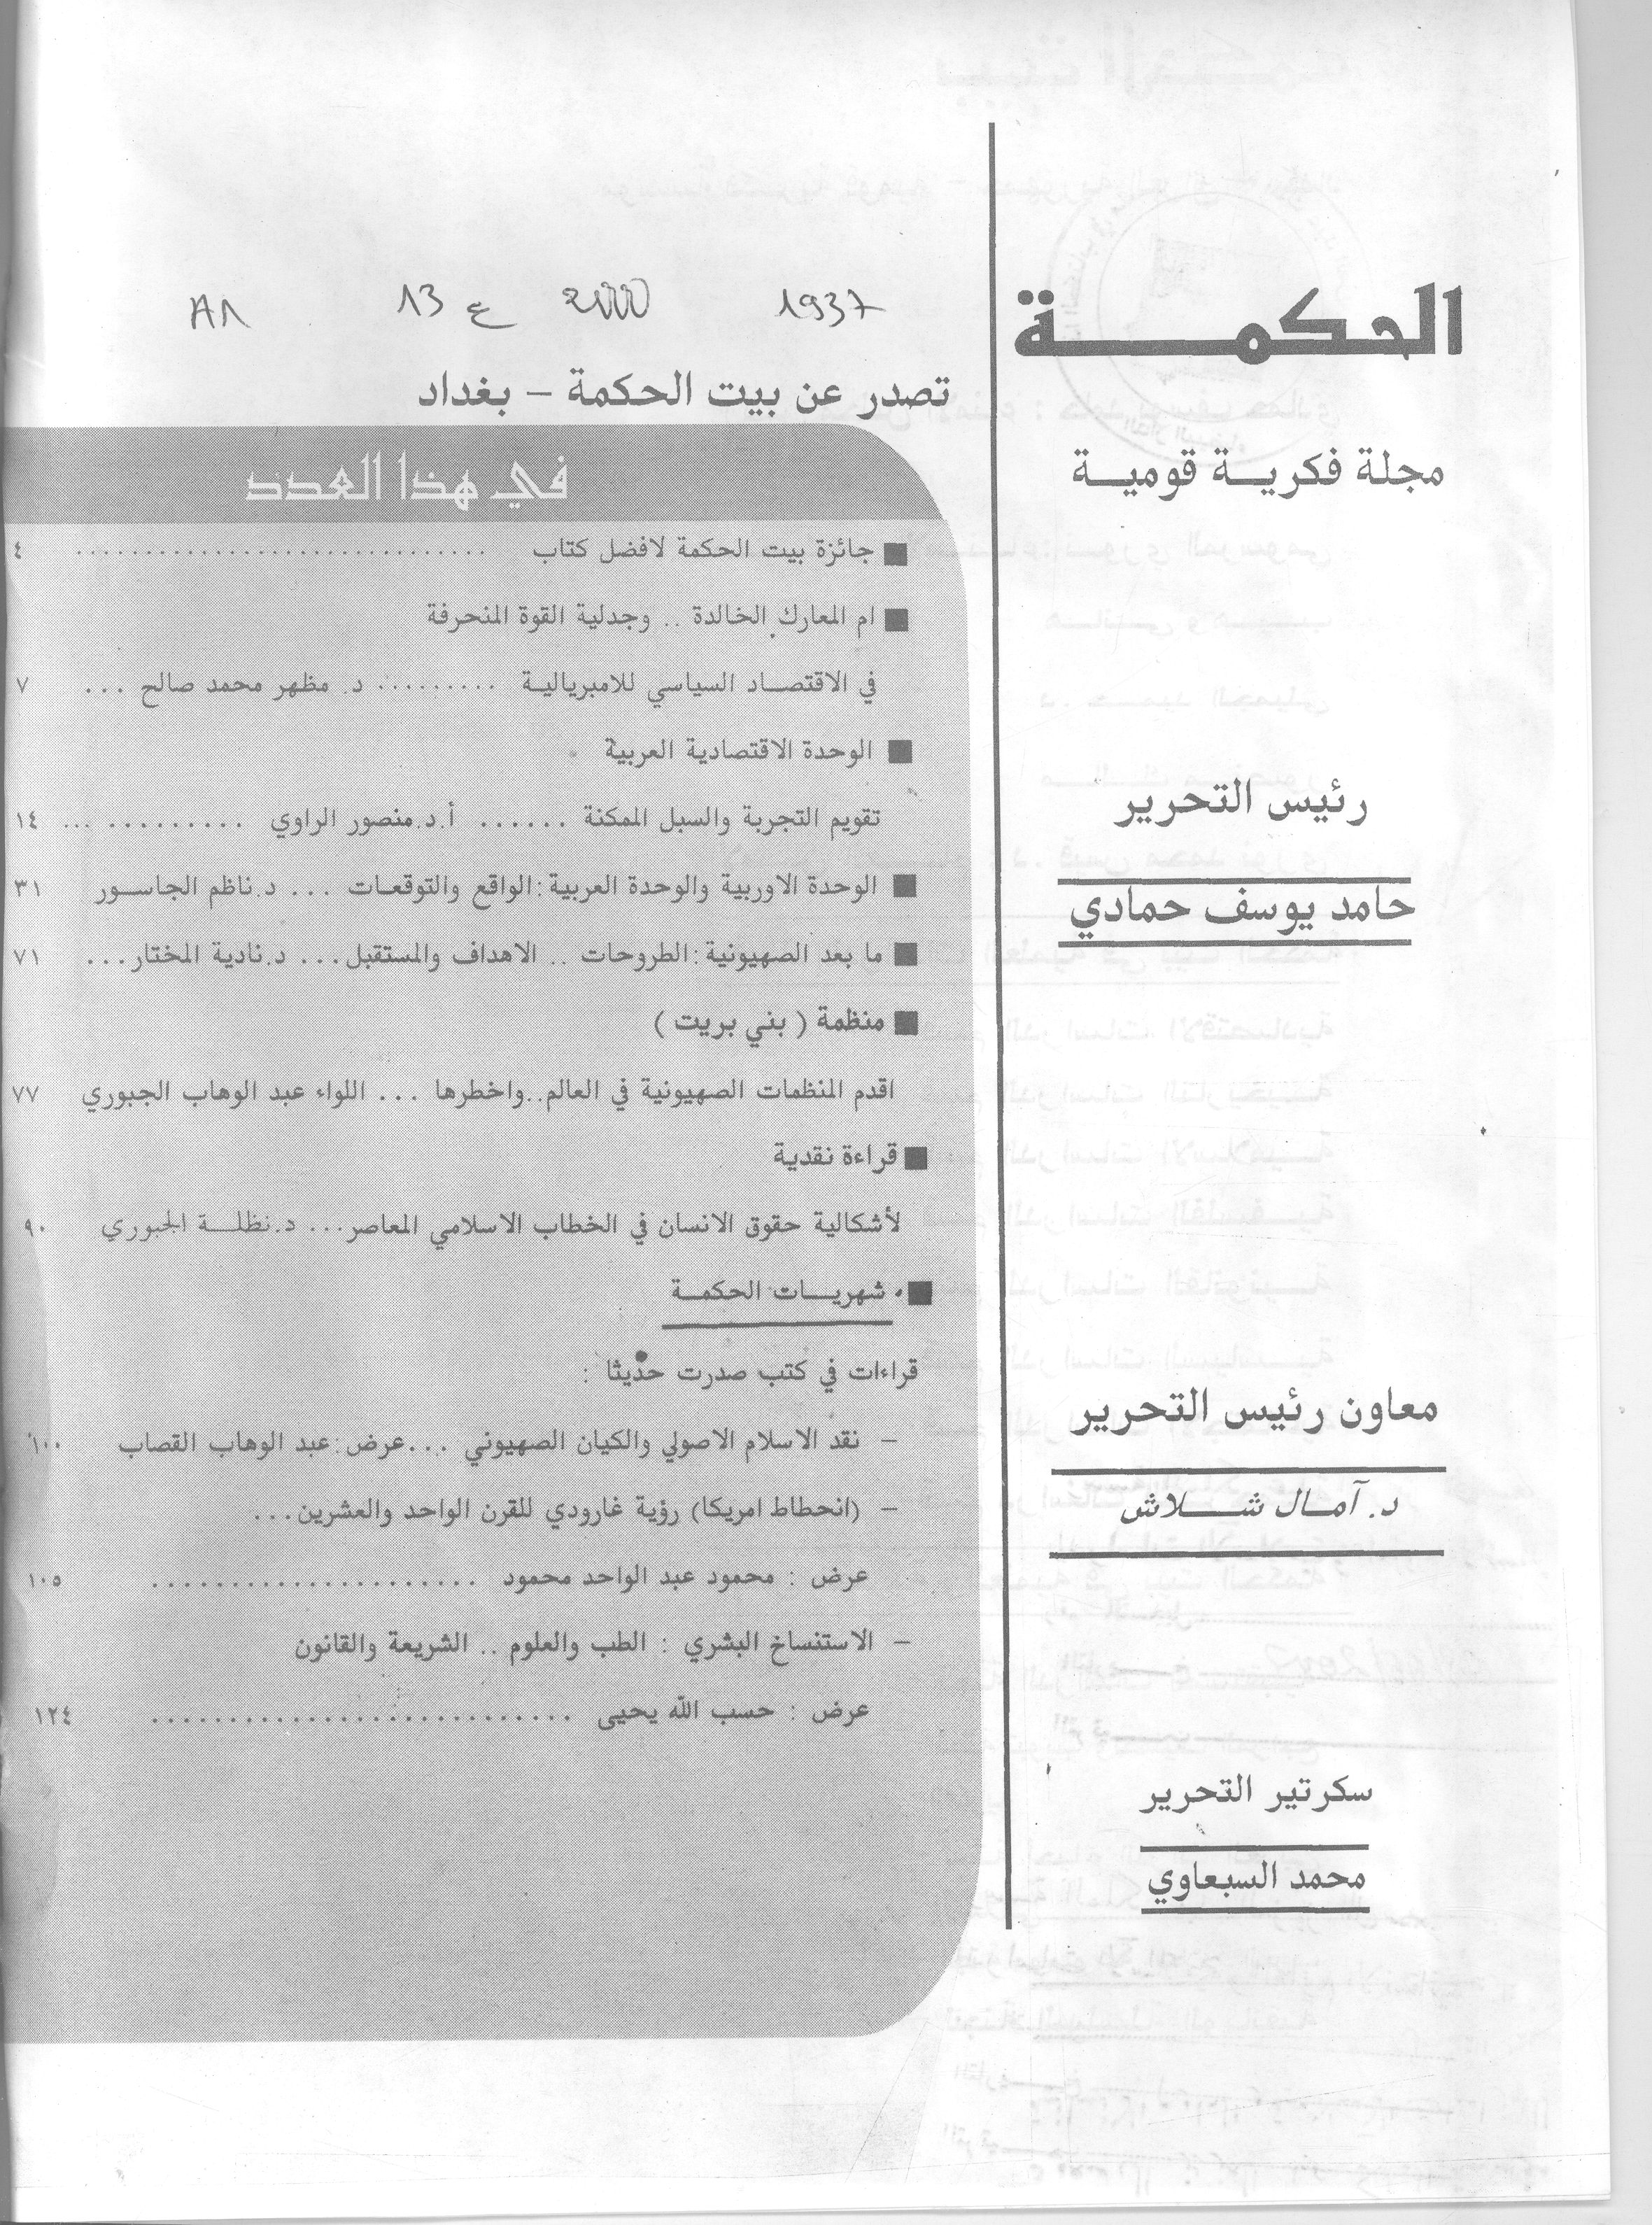 الحكمة
مجلة فكرية قومية
رئيس التحرير
حامد يوسف حمادي
معاون رئيس التحرير
د. آمال شلاش
سكرتير التحرير
محمد السبعاوي
1937 2000 ع 13
تصدر عن بيت الحكمة – بغداد
في هذا العدد
■ جائزة بيت الحكمة لافضل كتاب ................................ ٤
■ ام المعارك الخالدة .. وجدلية القوة المنحرفة
في الاقتصاد السياسي للامبريالية ......... د. مظهر محمد صالح ... ٧
■ الوحدة الاقتصادية العربية
تقويم التجربة والسبل الممكنة ...... أ.د.منصور الراوي ......... ... ١٤
■ الوحدة الاوربية والوحدة العربية:الواقع والتوقعات ... د.ناظم الجاسور ٣١
■ ما بعد الصهيونية:الطروحات .. الاهداف والمستقبل... د.نادية المختار... ٧١
■ منظمة ( بني بريت )
اقدم المنظمات الصهيونية في العالم..واخطرها ... اللواء عبد الوهاب الجبوري ٧٧
■ قراءة نقدية
لأشكالية حقوق الانسان في الخطاب الاسلامي المعاصر... د.نظلة الجبوري ٩٠
■ شهريات الحكمة
قراءات في كتب صدرت حديثا :
– نقد الاسلام الاصولي والكيان الصهيوني ...عرض:عبد الوهاب القصاب ١٠٠
– (انحطاط امريكا) رؤية غارودي للقرن الواحد والعشرين...
عرض : محمود عبد الواحد محمود ..................... ١٠٥
– الاستنساخ البشري : الطب والعلوم .. الشريعة والقانون
عرض : حسب الله يحيى ........................... ١٢٤